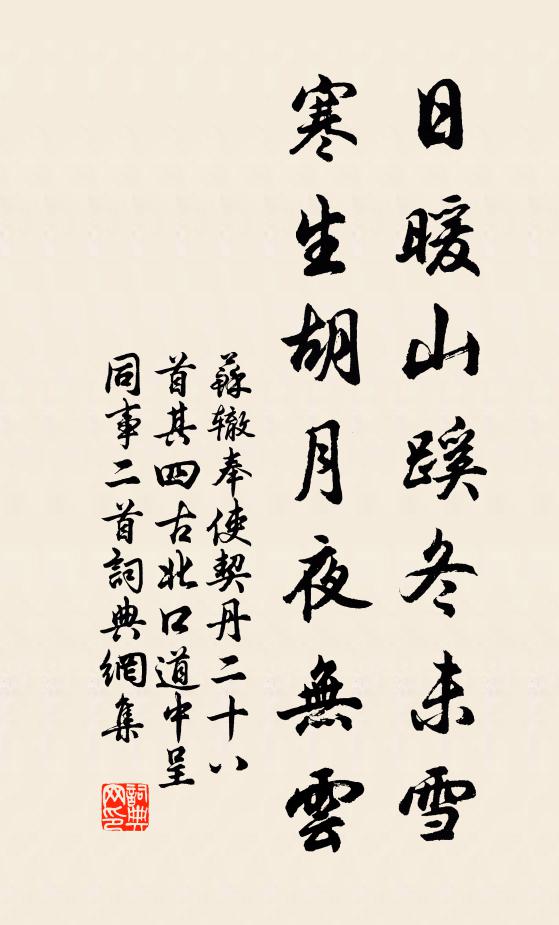 日暖山蹊冬未雪
寒生胡月夜無雲
蘇轍奉使契丹二十八
首其四古北口道中呈
同事二首詞典網集
詞典
网印